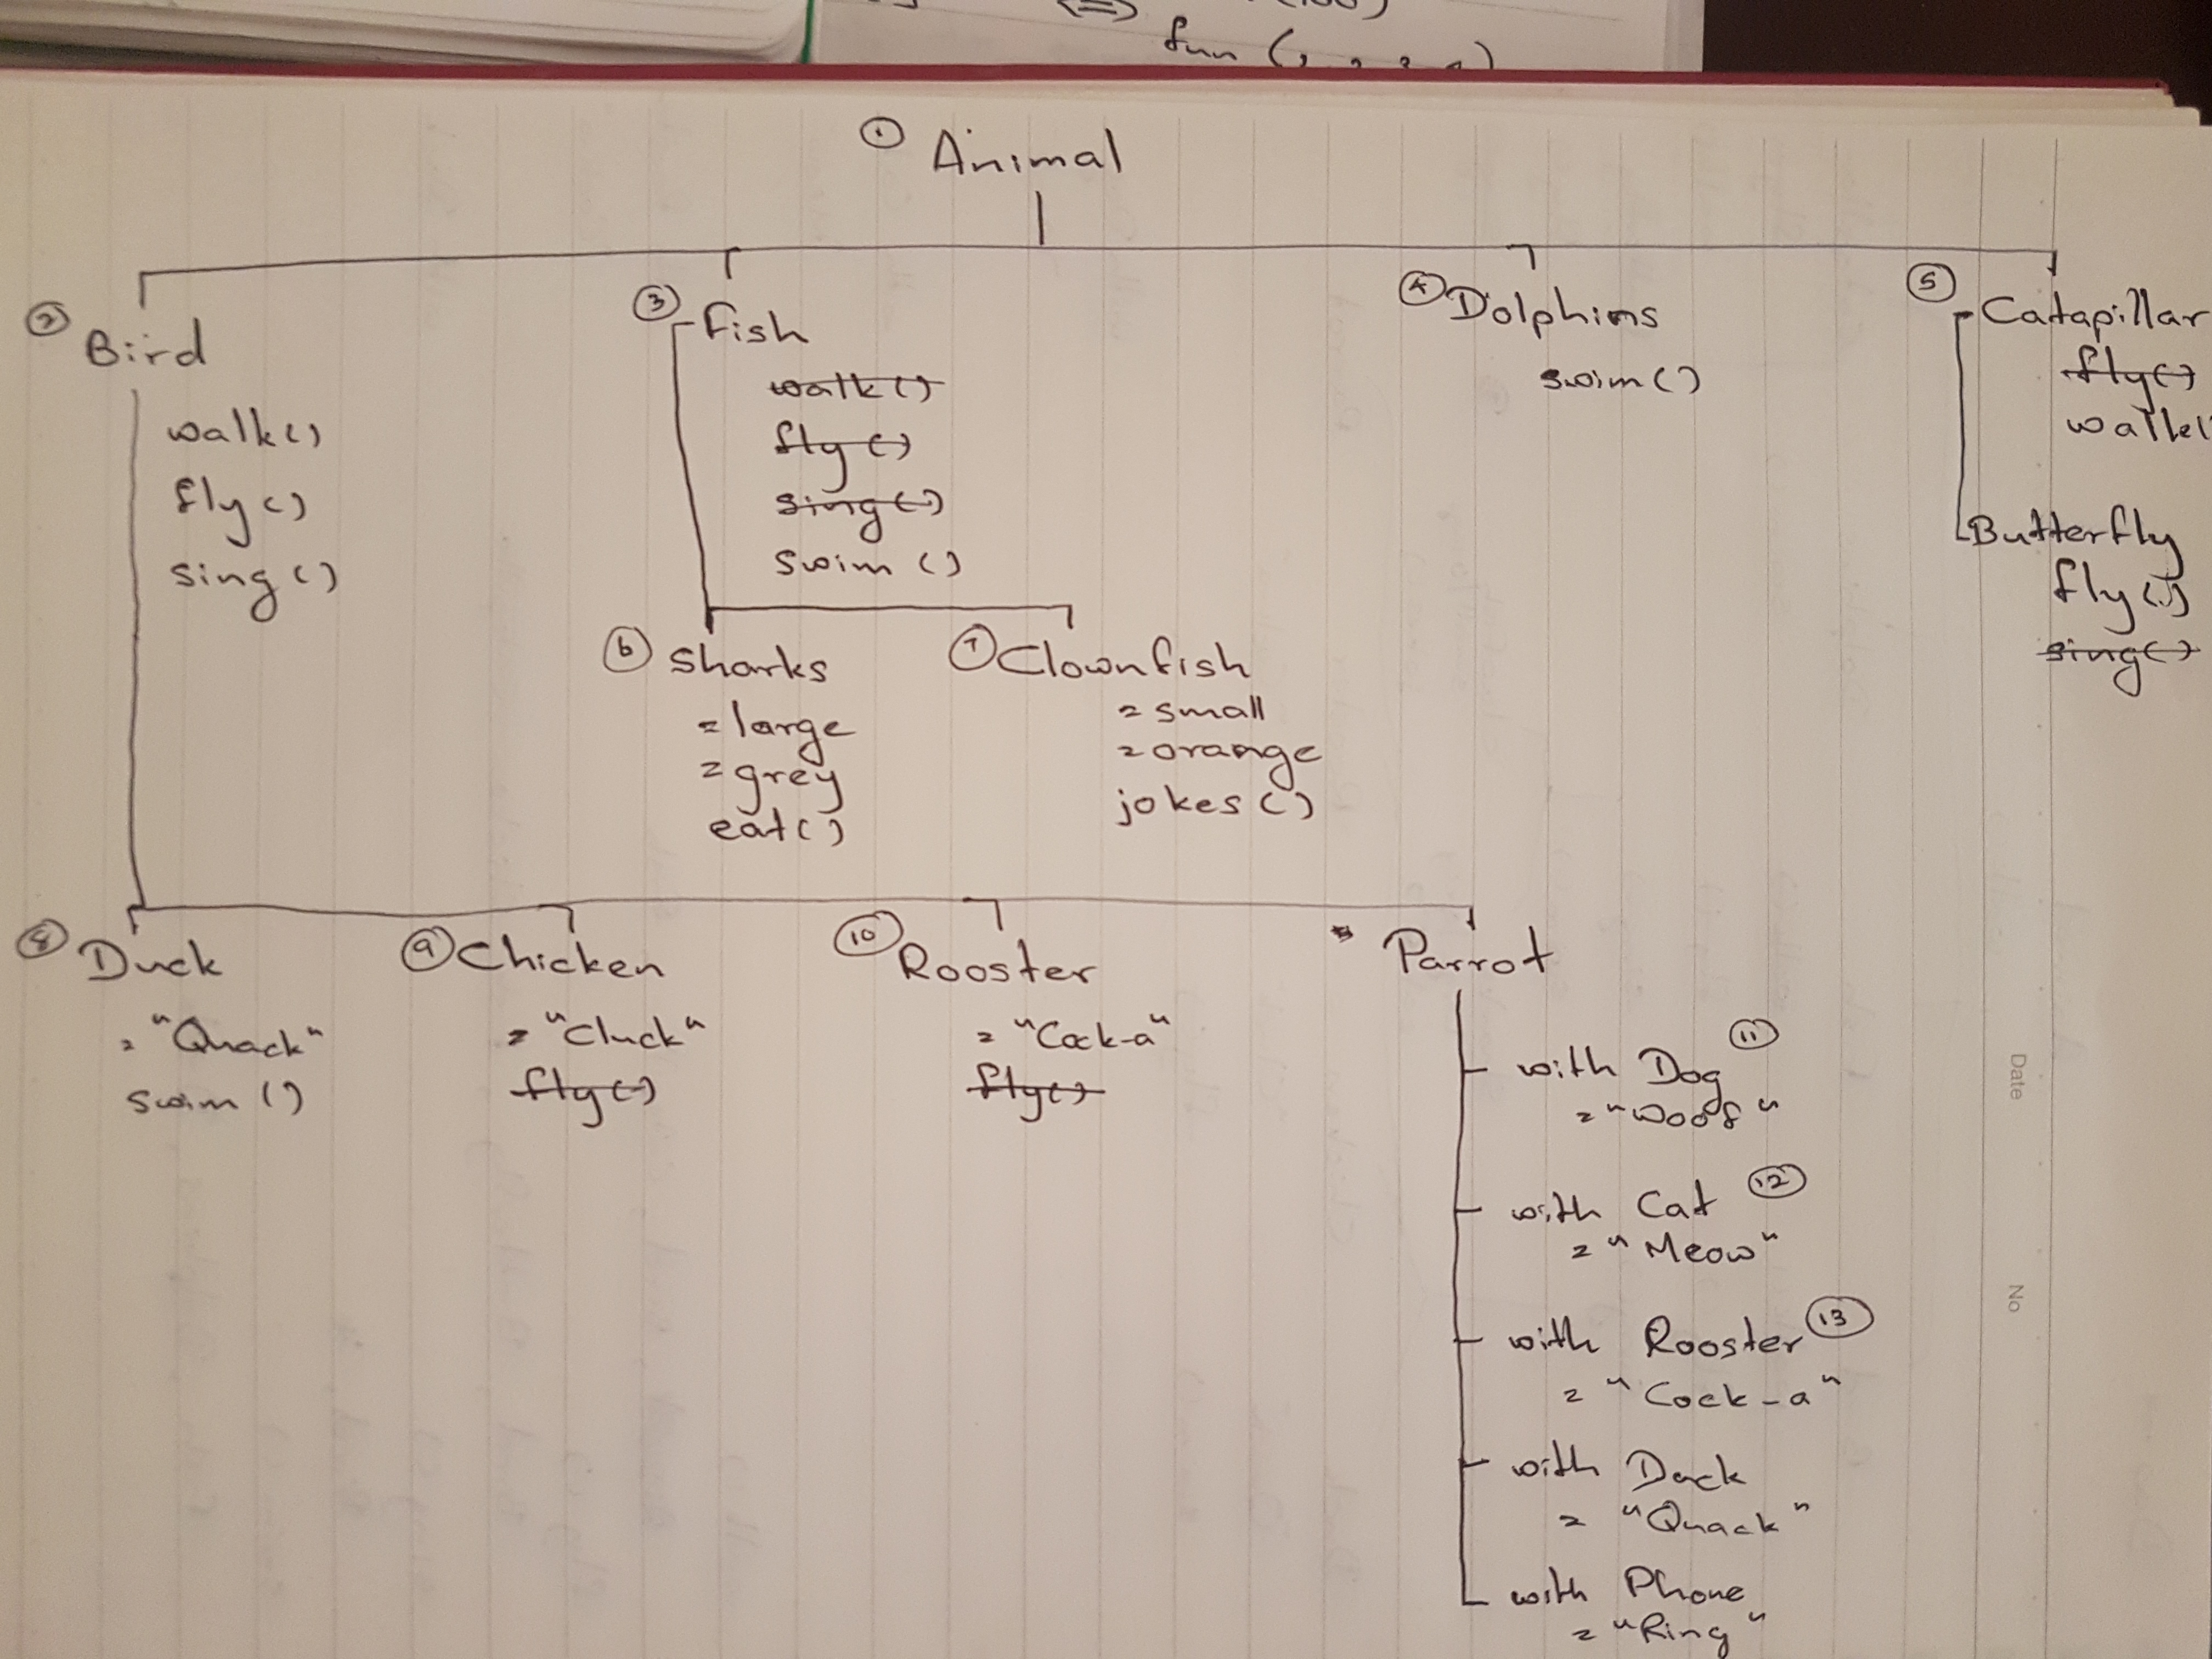 fun (
① Animal
② Bird
walk()
fly()
sing()
③ Fish
walk()
fly()
sing()
swim()
④ Dolphins
swim()
⑤ Catapillar
fly()
Butterfly
fly()
sing()
⑥ Sharks
= large
= grey
eat()
⑦ Clownfish
= small
= orange
jokes()
⑧ Duck
= "Quack"
swim()
⑨ Chicken
= "Cluck"
fly()
⑩ Rooster
= "Cock-a"
fly()
Parrot
with Dog ⑪
= "Woof"
with Cat ⑫
= "Meow"
with Rooster ⑬
= "Cock-a"
with Duck
= "Quack"
with Phone
= "Ring"
Date
No